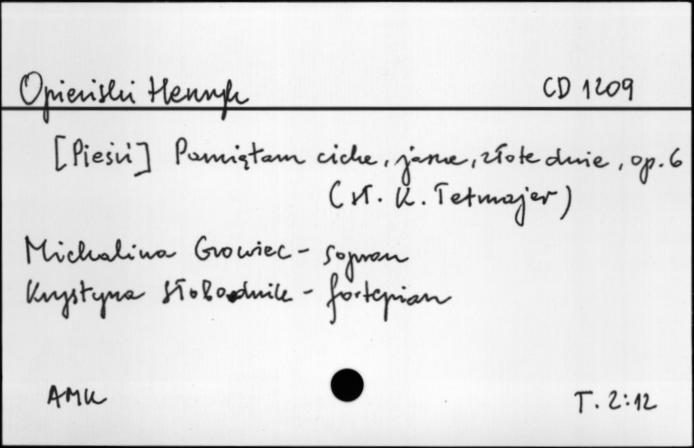 Opieński Henryk CD 1209
[Pieśń] Pamiętam ciche, jasne, złote dnie, op. 6
(sł. K. Tetmajer)
Michalina Growiec - sopran
Krystyna Słobodnik - fortepian
AMK T. 2:12